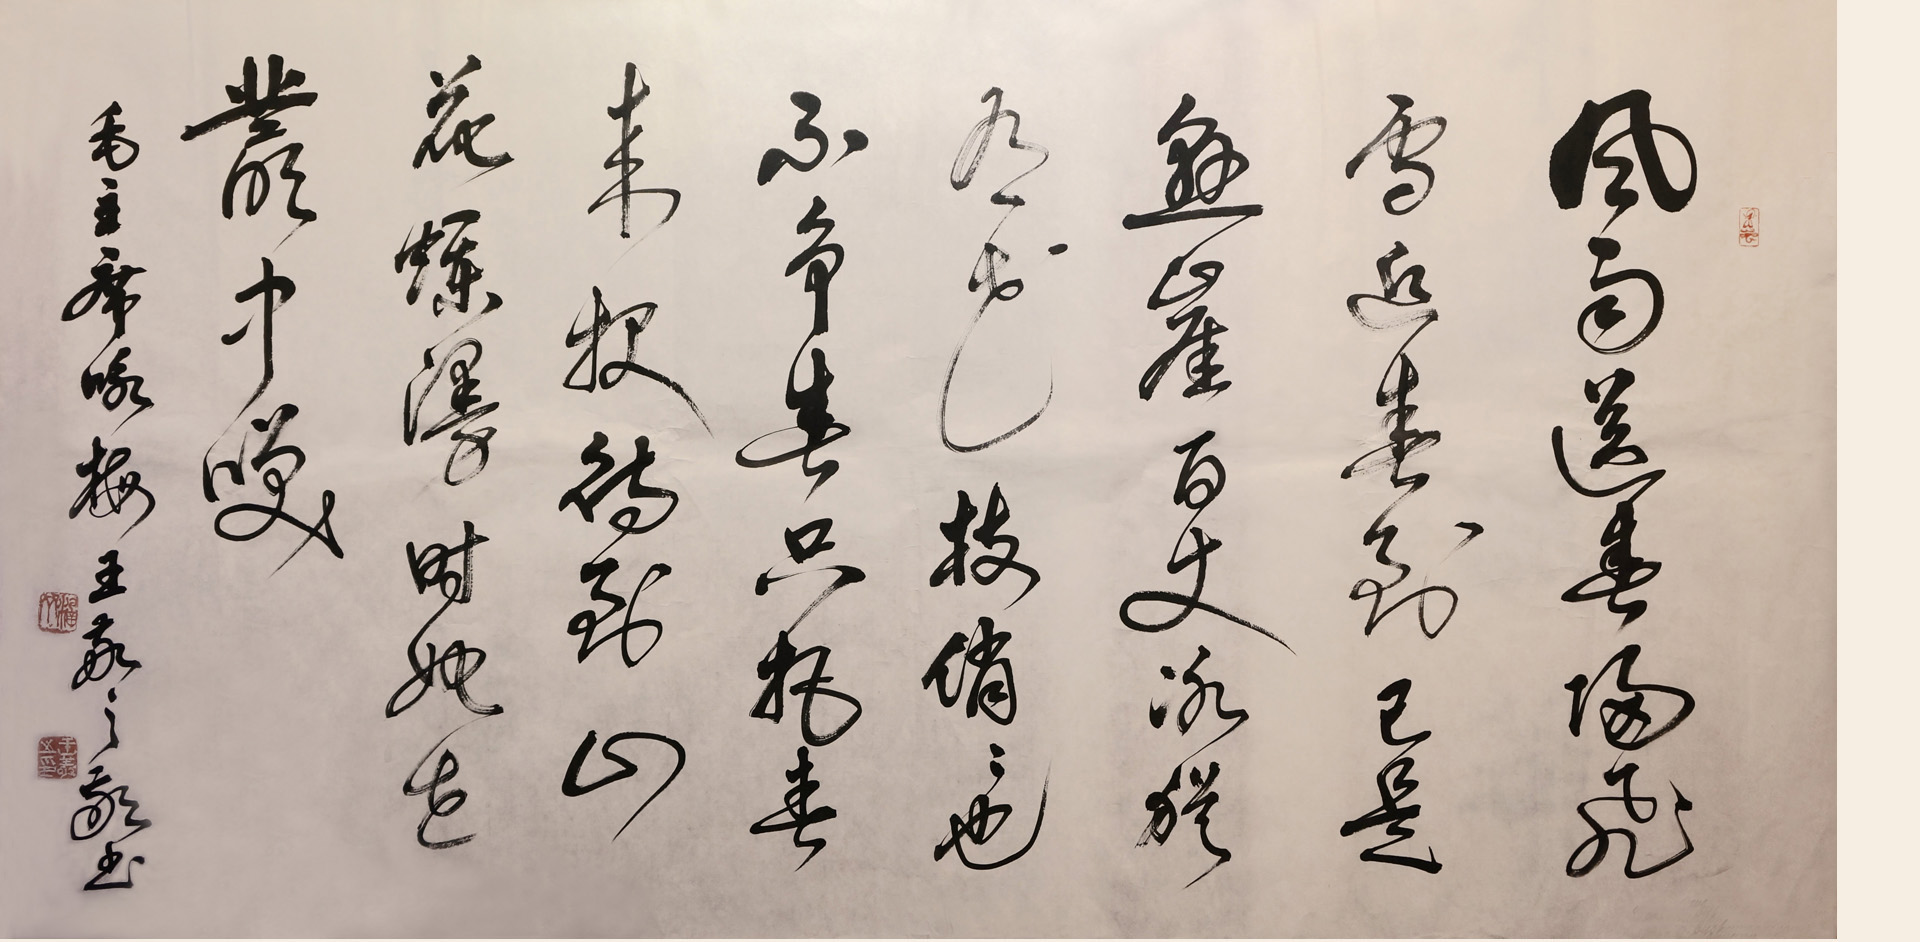 風雨送春歸飛
雪迎春到已是
懸崖百丈冰猶
有花枝俏〻也
不争春只把春
来报待到山
花爛漫时她在
叢中咲
毛主席咏梅 王
敬书